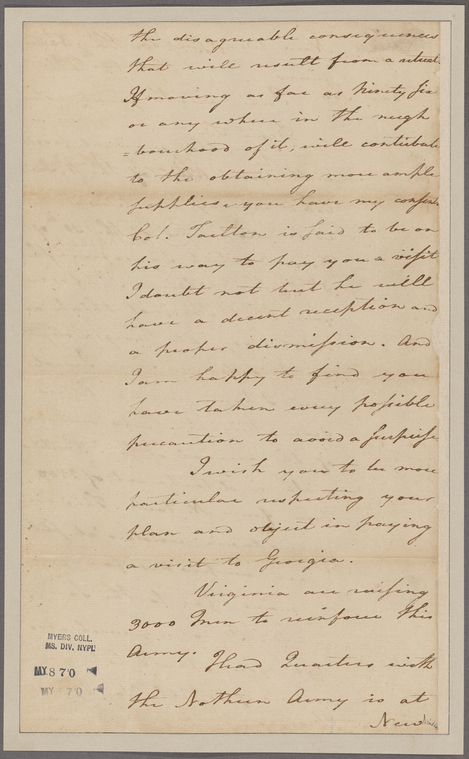 the disagreable consequences
that will result from a retreat.
If moving as far as Ninety Six
or any where in the neigh
=bourhood of it, will contribute
to the obtaining more ample
supplies, you have my consent.
Col. Tarlton is said to be on
his way to pay you a visit
I doubt not but he will
have a decent reception and
a proper dismission. And
I am happy to find you
have taken every possible
precaution to avoid a surprise
I wish you to be more
particular respecting your
plan and object in paying
a visit to Georgia.
Virginia are raising
3000 Men to reinforce this
Army.
Head Quarters with
the Nothern Army is at
New
MYERS COLL.
MS. DIV. NYPL
MY 8 70
MY 70